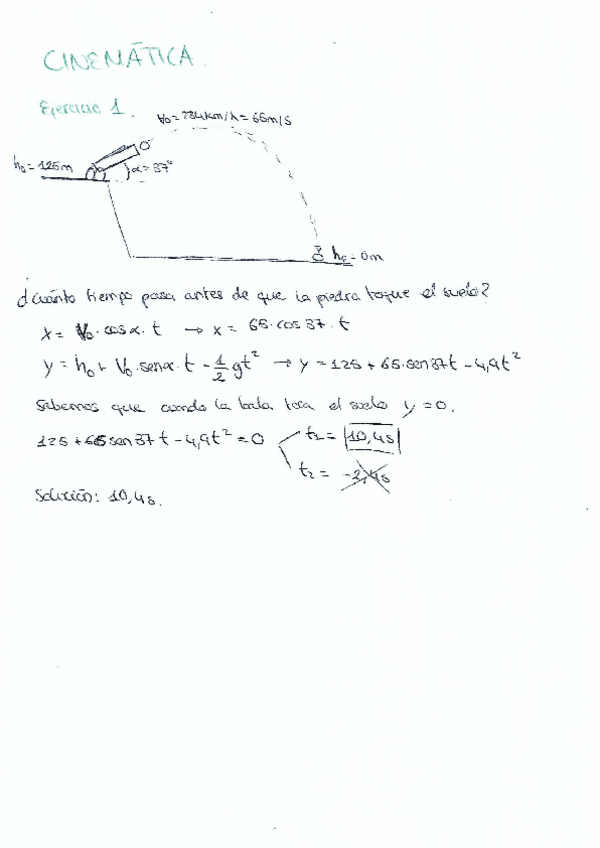 CINEMÁTICA.
Ejercicio 1.
V₀ = 234km/h = 65m/s
h₀ = 125m
α = 37°
hF = 0m
¿Cuánto tiempo pasa antes de que la piedra toque el suelo?
x = V₀·cosα·t → x = 65·cos37·t
y = h₀ + V₀·senα·t - 1/2 gt² → y = 125 + 65·sen37t - 4,9t²
Sabemos que cuando la bala toca el suelo y = 0.
125 + 65sen37t - 4,9t² = 0
t₁ = 10,4s
t₂ = -2,4s
Solución: 10,4s.